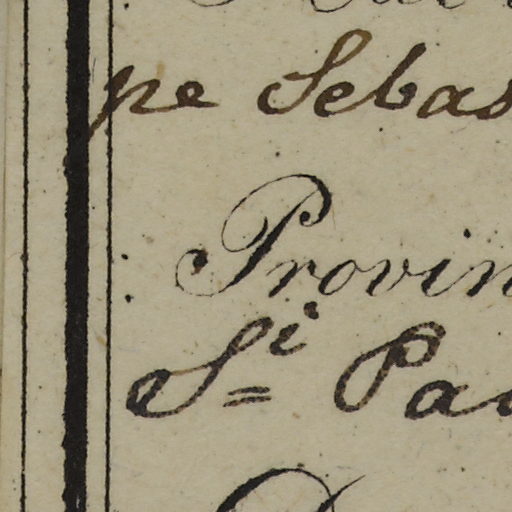 pe Sebas
Provin
Si= Pau